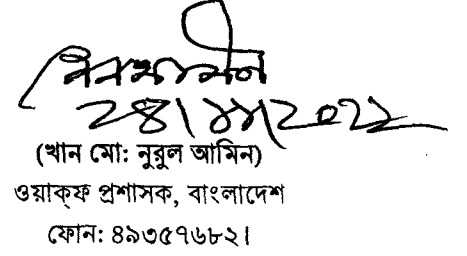 ২৪/১১/২০২২
(খান মো: নুরুল আমিন)
ওয়াক্ফ প্রশাসক, বাংলাদেশ
ফোন: ৪৯৩৫৭৬৮২।